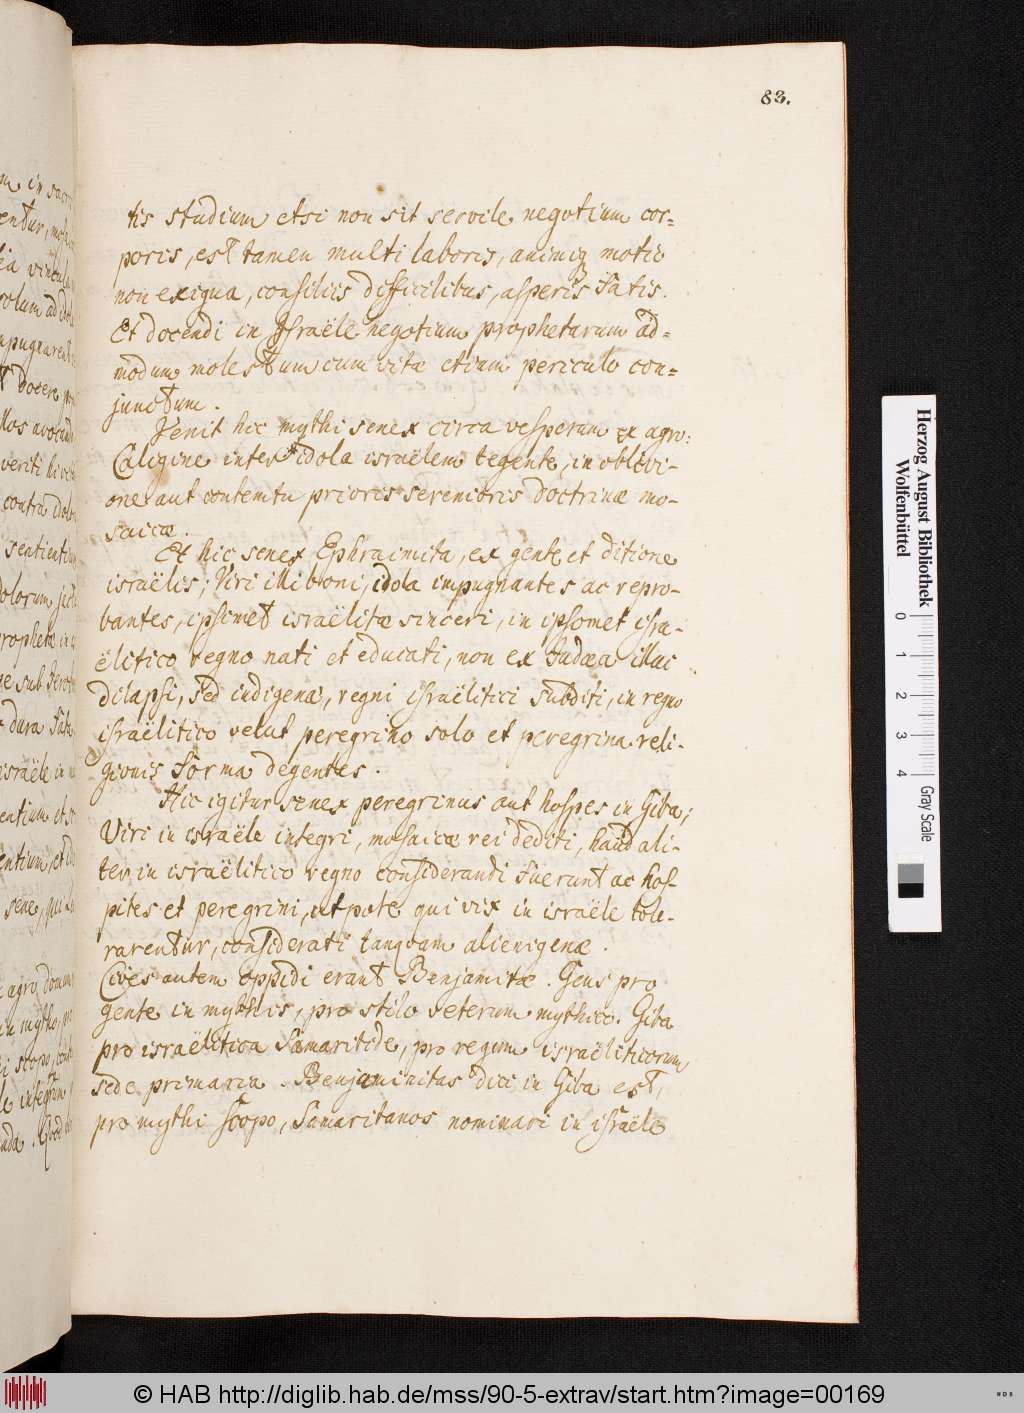 83.
tis studium etsi non sit servile negotium cor=
poris, est tamen multi laboris, animiq motio
non exigua, consiliis difficilibus, asperis fatis.
Et docendi in Israële negotium prophetarum ad=
modum molestum cum vitæ etiam periculo con=
junctum.
Venit hic mythi senex circa vesperam ex agro:
Caligine inter idola israëlem tegente, in oblivi-
one aut contemtu prioris serenioris doctrinæ mo-
saicæ.
Et hic senex Ephraimita, ex gente et ditione
israëlis; Viri illi boni, idola impugnantes ac repro-
bantes, ipsimet israëlitæ sinceri, in ipsomet isra-
ëlitico regno nati et educati, non ex Judæa illuc
dilapsi, sed indigenæ, regni israëlitici subditi, in regno
israëlitico velut peregrino solo et peregrina reli-
gionis forma degentes.
Hic igitur senex peregrinus aut hospes in Giba;
Viri in israële integri, mosaicæ rei dediti, haud ali-
ter in israëlitico regno considerandi fuerunt ac hos-
pites et peregrini, utpote qui vix in israële tole-
rarentur, considerati tanquam alienigenæ.
Cives autem oppidi erant Benjamitæ. Gens pro
gente in mythis, pro stilo veterum mythico. Giba
pro israëlitica Samaritide, pro regum israëliticorum
sede primaria. Benjaminitas dici in Giba est,
pro mythi scopo, Samaritanos nominari in israële
Herzog August Bibliothek
Wolfenbüttel
0 1 2 3 4 Gray Scale
© HAB http://diglib.hab.de/mss/90-5-extrav/start.htm?image=00169